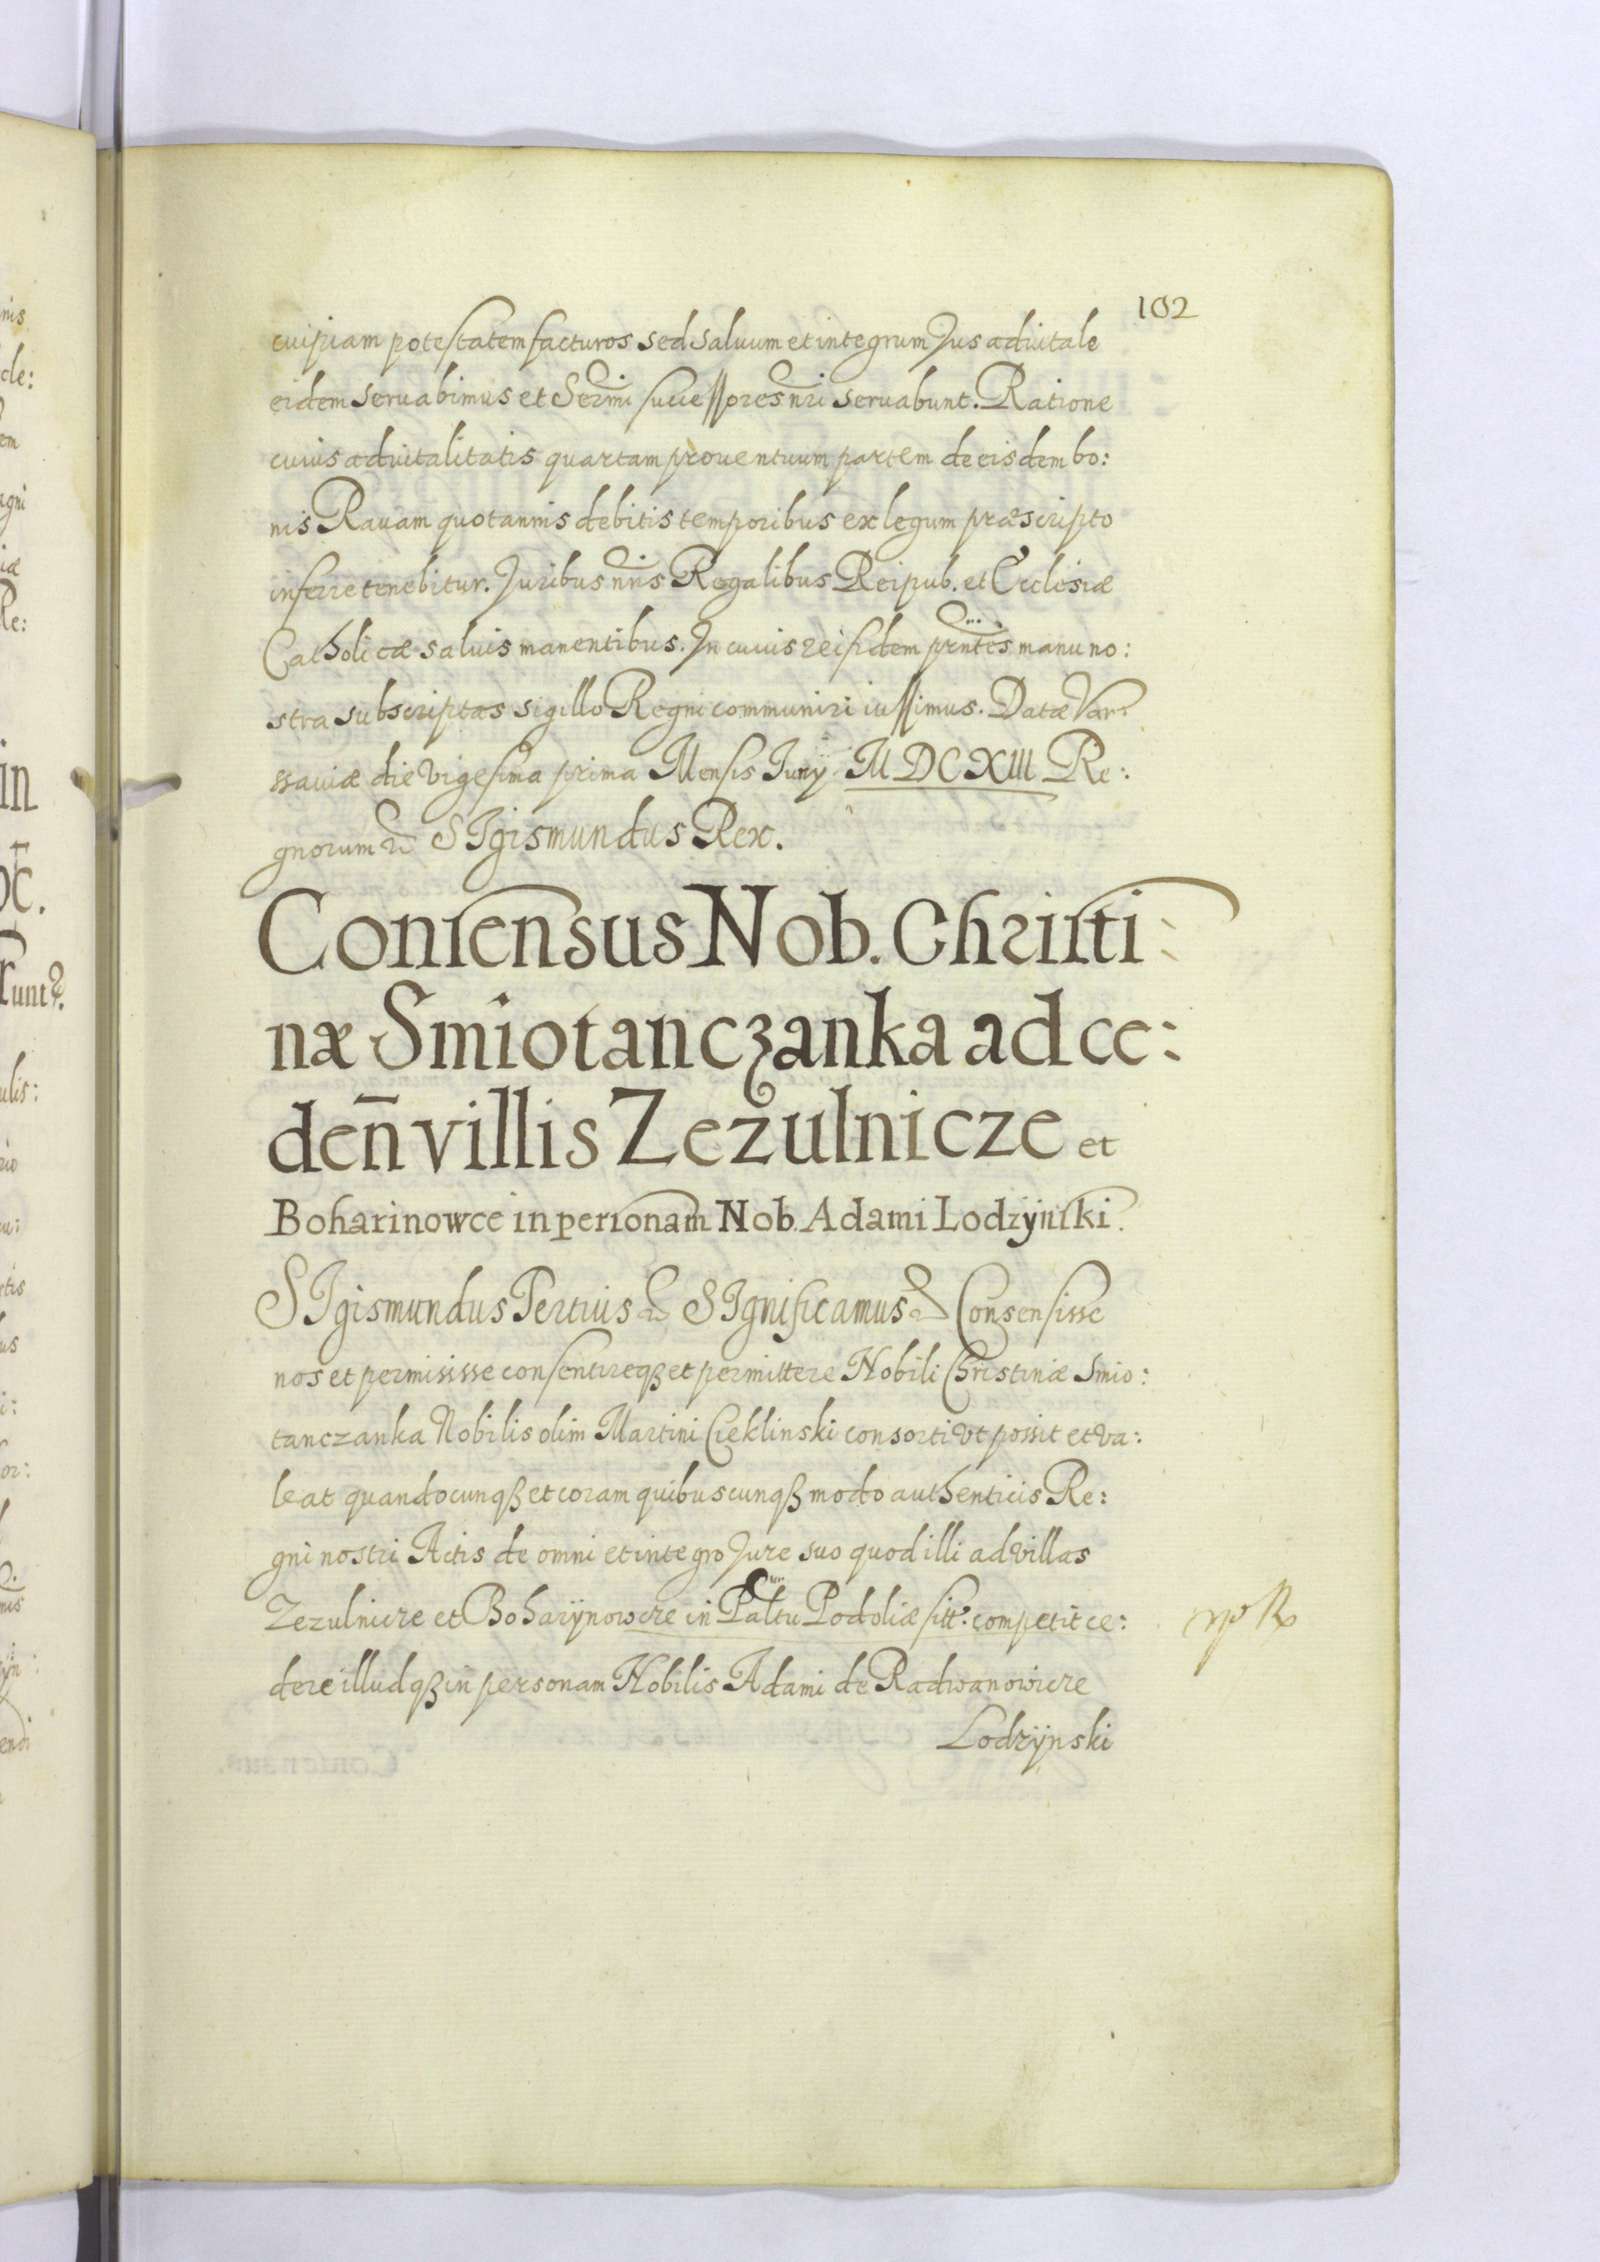 102
cuipiam potestatem facturos sed saluum et integrum Jus aduitale
eidem seruabimus et Sermi successores nri seruabunt. Ratione
cuius aduitalitatis quartam prouentuum partem de eisdem bo:
nis Rauam quotannis debitis temporibus ex legum præscripto
inferre tenebitur. Juribus nris Regalibus Reipub. et Ecclesiæ
Catholicæ saluis manentibus. In cuius rei fidem prntes manu no:
stra subscriptas sigillo Regni communiri iussimus. Datæ Var:
ssauiæ die vigesima prima Mensis Iunij MDCXIII Re:
gnorum &c SIgismundus Rex.
Consensus Nob. Christi:
næ Smiotanczanka ad ce:
den̄ villis Zezulnicze et
Boharinowce in personam Nob. Adami Lodzÿnski.
SIgismundus Tertius &c SIgnificamus &c Consensisse
nos et permisisse consentireqꝫ et permittere Nobili Christinæ Smio:
tanczanka Nobilis olim Martini Cieklinski consorti vt possit et va:
leat quandocunqꝫ et coram quibuscunqꝫ modo authenticis Re:
gni nostri Actis de omni et integro Jure suo quod illi ad villas
Zezulnicze et Boharÿnowcze in Paltu Podoliæ sitt. competit ce:
dere illudqꝫ in personam Nobilis Adami de Radwanowicze
Lodzÿnski